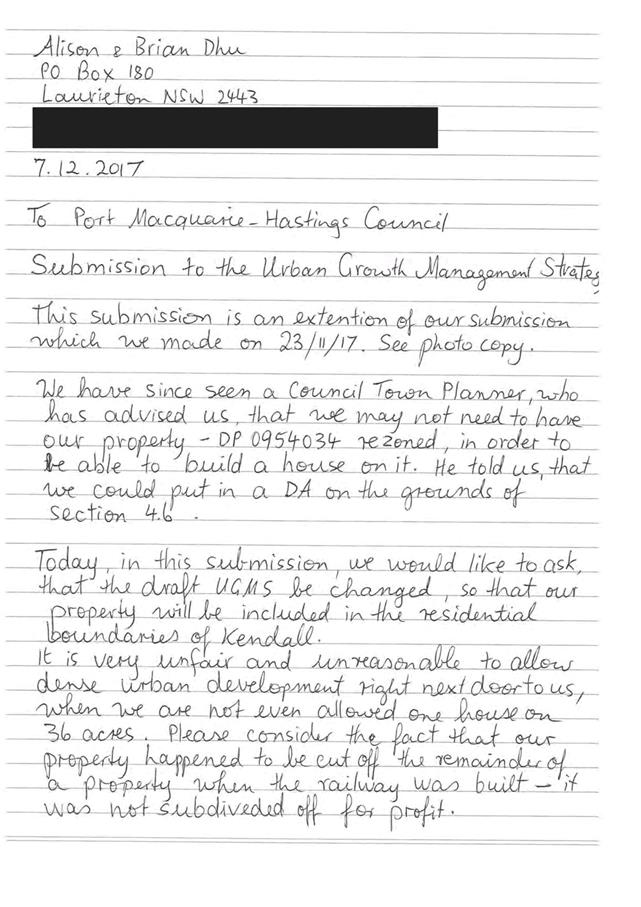 Alison & Brian Dhu
PO Box 180
Laurieton NSW 2443
7.12.2017
To Port Macquarie-Hastings Council
Submission to the Urban Growth Management Strateg
This submission is an extention of our submission
which we made on 23/11/17. See photo copy.
We have since seen a Council Town Planner, who
has advised us, that we may not need to have
our property - DP 0954034 rezoned, in order to
be able to build a house on it. He told us, that
we could put in a DA on the grounds of
section 4.6.
Today, in this submission, we would like to ask,
that the draft UGMS be changed, so that our
property will be included in the residential
boundaries of Kendall.
It is very unfair and unreasonable to allow
dense urban development right next door to us,
when we are not even allowed one house on
36 acres. Please consider the fact that our
property happened to be cut off the remainder of
a property when the railway was built - it
was not subdiveded off for profit.